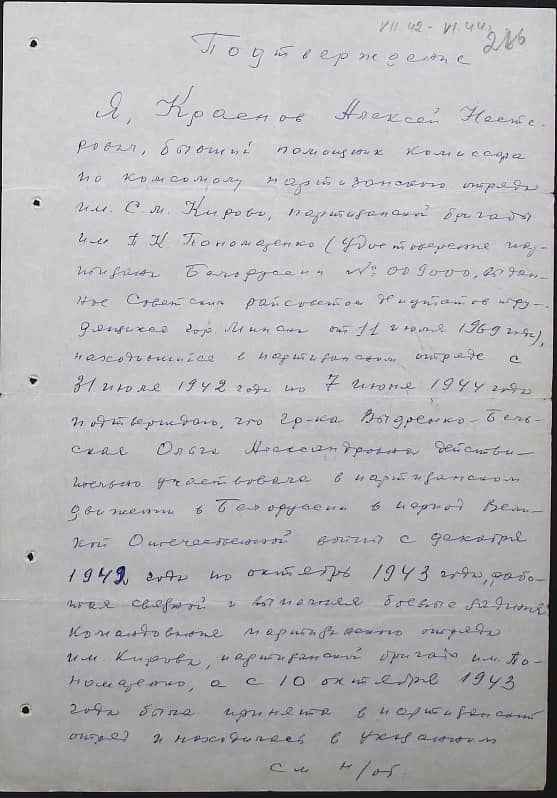 VII.42 - VI.44г.
Подтверждение
Я, Краснов Алексей Несте-
рович, бывший помощник комиссара
по комсомолу партизанского отряда
им. С.М. Кирова, партизанской бригады
им П К Пономаренко (удостоверение пар-
тизана Белоруссии № 009000, выдан-
ное Советским райсоветом депутатов тру-
дящихся гор. Минска от 11 июля 1969 года),
находившийся в партизанском отряде с
31 июля 1942 года по 7 июня 1944 года
подтверждаю, что гр-ка Выдренко-Бель-
ская Ольга Александровна действи-
тельно участвовала в партизанском
движении в Белоруссии в период Вели-
кой Отечественной войны с декабря
1942 года по октябрь 1943 года, рабо-
тая связной и выполняя боевые задания
командования партизанского отряда
им. Кирова, партизанской бригады им. По-
номаренко, а с 10 октября 1943
года была принята в партизанский
отряд и находилась в указанном
см н/об.